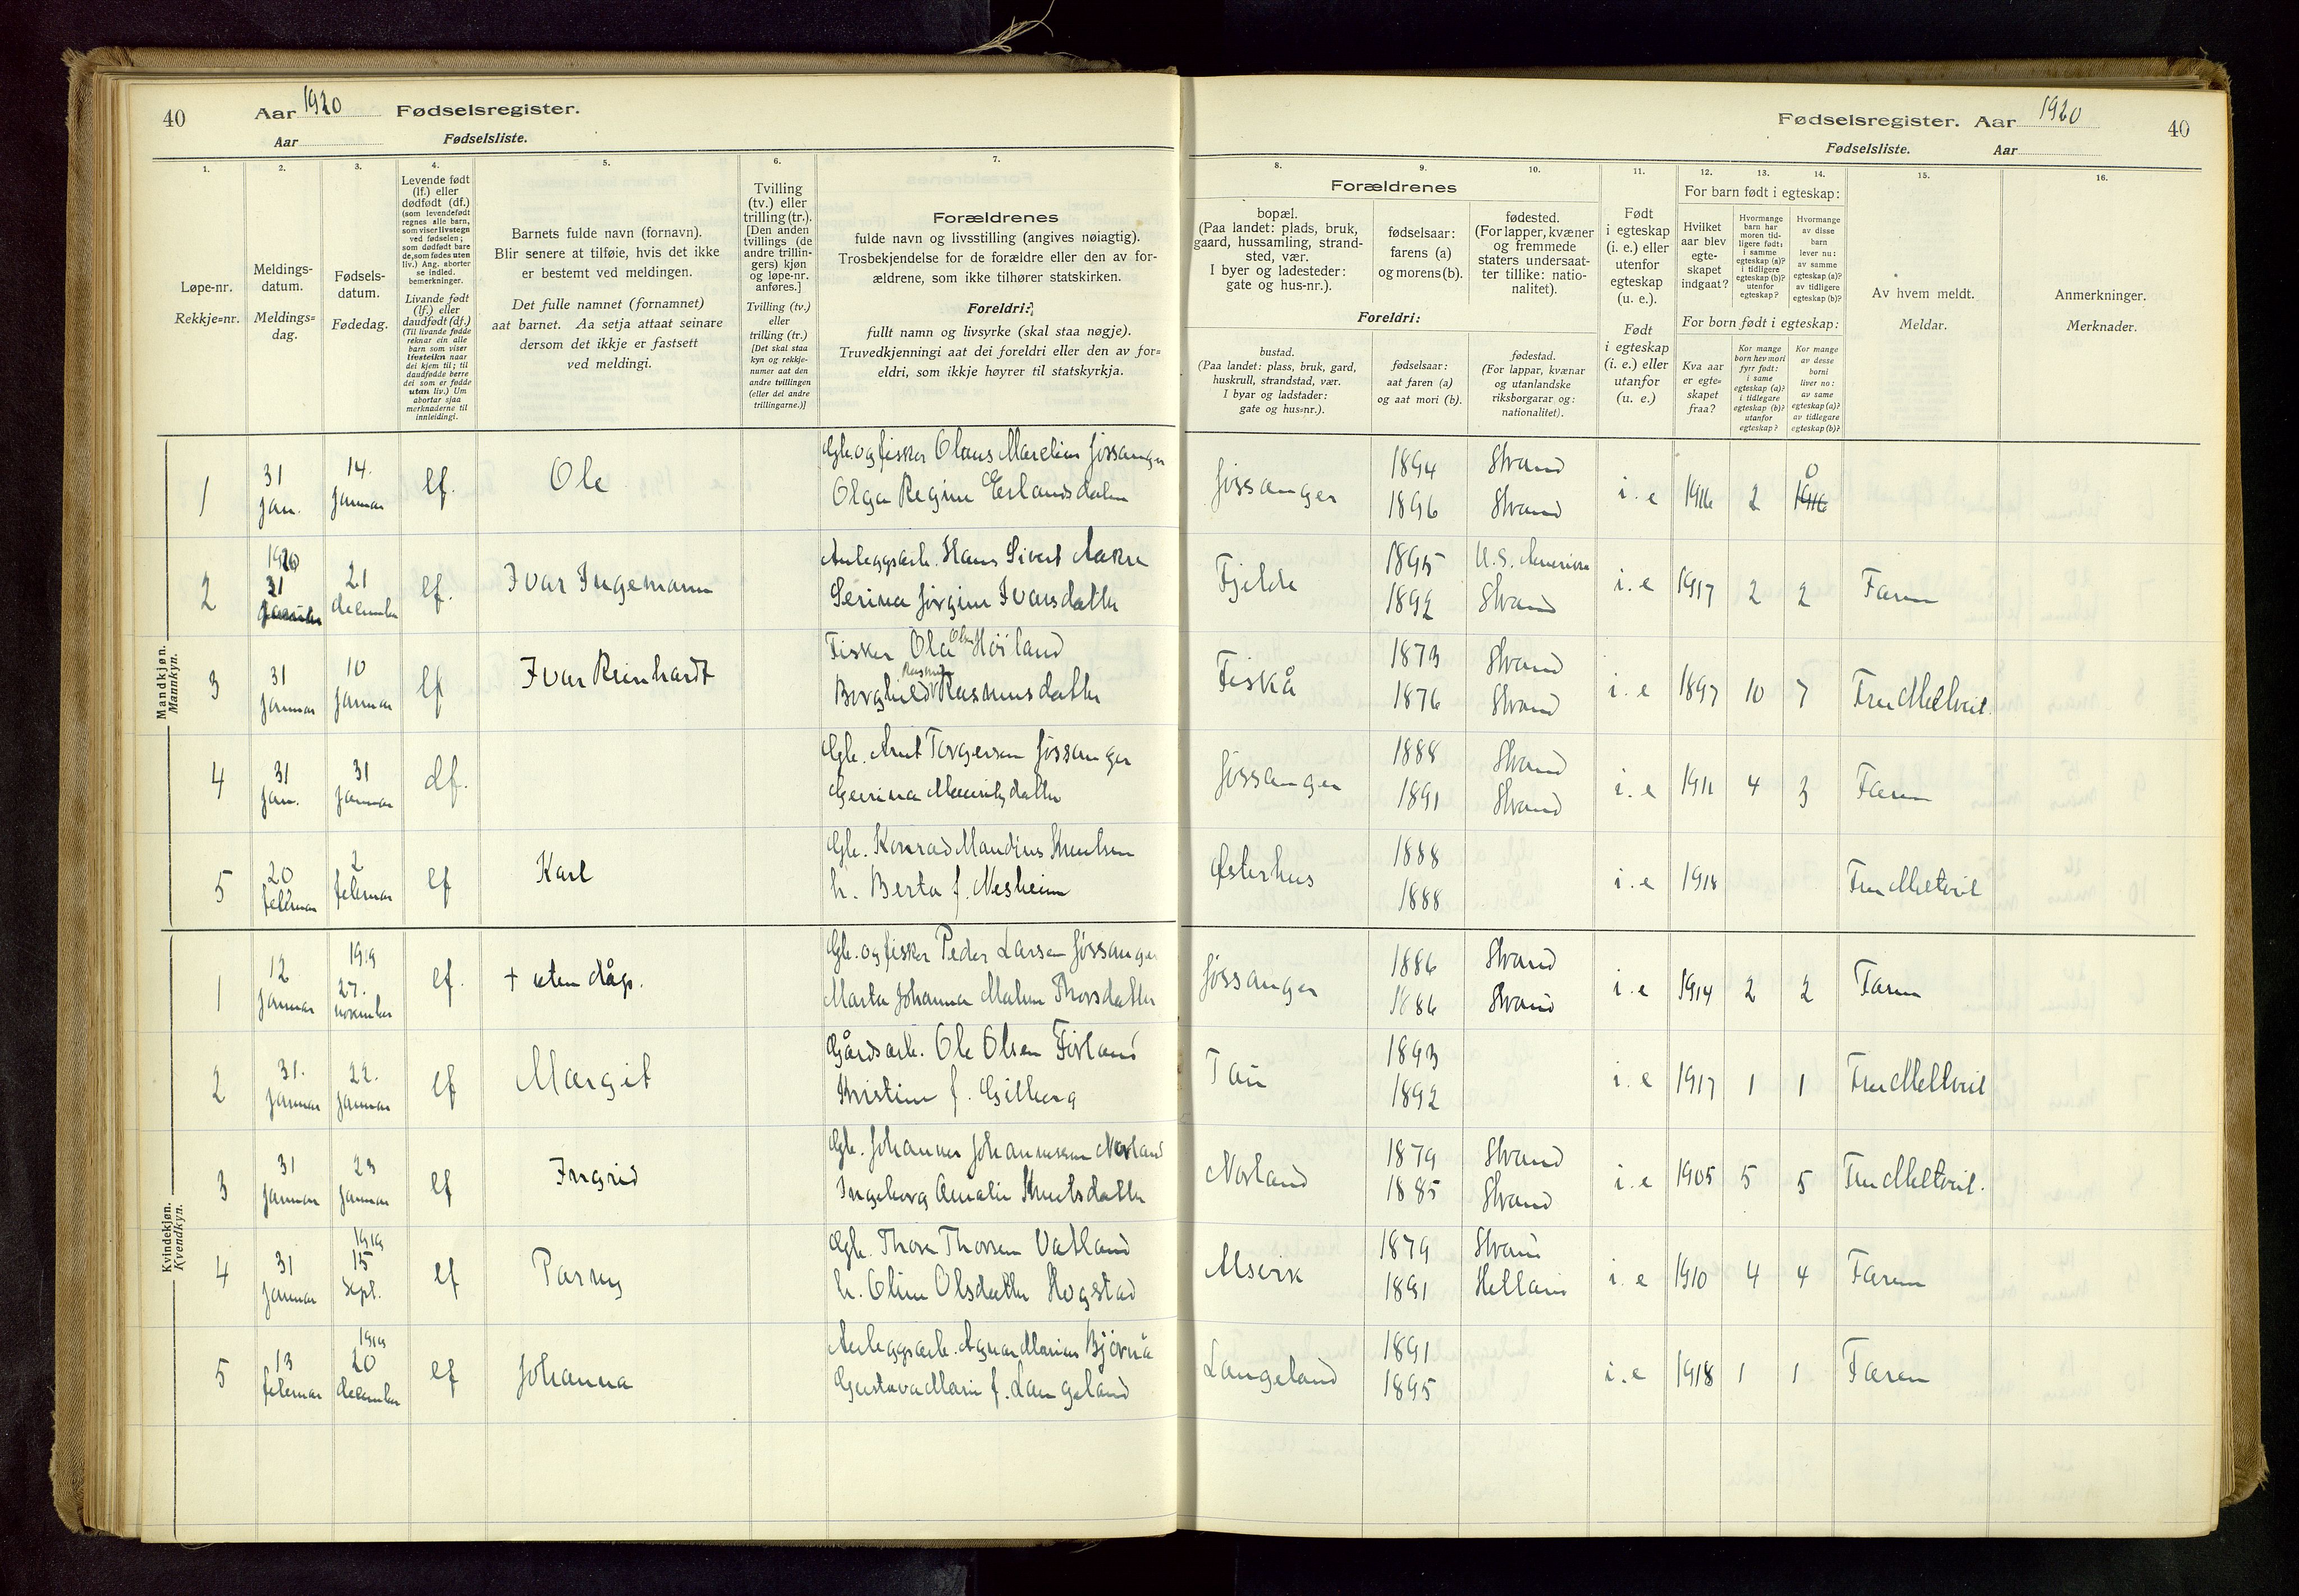 40
Aar 1920 Fødselsregister.
Aar Fødselsliste.
Fødselsregister. Aar 1920
40
Fødselsliste. Aar
1. 2. 3. 4. 5. 6. 7.
Løpe-nr.
Rekkje=nr.
Meldings-
datum.
Meldings=
dag.
Fødsels-
datum.
Fødedag.
Levende født
(lf.) eller
dødfødt (df.)
(som levendefødt
regnes alle barn,
som viser livstegn
ved fødselen;
som dødfødt bare
de, som fødes uten
liv.) Ang. aborter
se indled.
bemerkninger.
Livande født
(lf.) eller
daudfødt (df.)
(Til livande fødde
reknar ein alle
barn som viser
livsteikn naar
dei kjem til; til
daudfødde berre
dei som er fødde
utan liv.) Um
abortar sjaa
merknaderne til
innleidingi.
Barnets fulde navn (fornavn).
Blir senere at tilføie, hvis det ikke
er bestemt ved meldingen.
Det fulle namnet (fornamnet)
aat barnet. Aa setja attaat seinare
dersom det ikkje er fastsett
ved meldingi.
Tvilling
(tv.) eller
trilling (tr.).
[Den anden
tvillings (de
andre trillin-
gers) kjøn
og løpe-nr.
anføres.]
Tvilling (tv.)
eller
trilling (tr.)
[Det skal staa
kyn og rekkje-
numer aat den
andre tvillingen
(eller dei andre
trillingarne.)]
Forældrenes
fulde navn og livsstilling (angives nøiagtig).
Trosbekjendelse for de forældre eller den av for-
ældrene, som ikke tilhører statskirken.
Foreldri:
fullt namn og livsyrke (skal staa nøgje).
Truvedkjenningi aat dei foreldri eller den av for=
eldri, som ikkje høyrer til statskyrkja.
8. 9. 10. 11. 12. 13. 14. 15. 16.
Forældrenes
bopæl.
(Paa landet: plads, bruk,
gaard, hussamling, strand-
sted, vær.
I byer og ladesteder:
gate og hus-nr.).
fødselsaar:
farens (a)
og morens (b).
fødested.
(For lapper, kvæner
og fremmede
staters undersaat-
ter tillike: natio-
nalitet).
Foreldri:
bustad.
(Paa landet: plass, bruk, gard,
huskrull, strandstad, vær.
I byar og ladstader:
gate og hus=nr.).
fødselsaar:
aat faren (a)
og aat mori (b).
fødestad.
(For lappar, kvænar
og utanlandske
riksborgarar og:
nationalitet).
Født
i egteskap
(i. e.) eller
utenfor
egteskap
(u. e.).
Født
i egteskap
(i. e.) eller
utanfor
(u. e.)
For barn født i egteskap:
Hvilket
aar blev
egte-
skapet
indgaat?
Hvormange
barn har
moren tid-
ligere født:
i samme
egteskap (a)?
i tidligere
egteskap (b)?
utenfor
egteskap?
Hvormange
av disse
barn
lever nu:
av samme
egteskap (a)?
av tidligere
egteskap (b)?
For born født i egteskap:
Kva aar
er egte=
skapet
fraa?
Kor mange
born hev mori
fyrr født:
i same
egteskap (a)?
i tidlegare
egteskap (b)?
utanfor
egteskap?
Kor mange
av desse
borni
liver no:
av same
egteskap (a)?
av tidlegare
egteskap (b)?
Av hvem meldt.
Meldar.
Anmerkninger.
Merknader.
Mandkjøn.
Mannkyn.
1 31 Jan. 14. Januar lf. Ole
Gb. og fisker Olaus Marelius Jøssanger
Olga Regine Erlandsdatter
Jøssanger 1894 Strand i. e 1916 2 0
1896 Strand
2 1920 31 Januar 21 december lf. Ivar Ingemann
Anleggsarb. Hans Sivert Aakre
Serina Jørgine Ivarsdatter
Fjelde 1895 U.S. Amerika i. e 1917 2 2 Faren
1892 Strand
3 31 Januar 10 Januar lf Ivar Reinhardt
Fisker Ole Olsen Høiland
Borghild Rasmusdatter
Fiskå 1873 Strand i. e 1897 10 7 Fru Meltveit.
1876 Strand
4 31 Jan. 31 Januar df.
Gb. Arnt Torgersen Jøssanger
Gurina Mauritzdatter
Jøssanger 1888 Strand i. e 1911 4 3 Faren
1891 Strand
5 20 februar 2 februar lf Karl
Gb. Konrad Maudius Knutsen
h. Berta f. Nesheim
Østerhus 1888 i. e 1918 Fru Meltveit
1888
Kvindekjøn.
Kvendkyn.
1 12 Januar 1919 27. november lf. + uten dåp.
Gb. og fisker Peder Larsen Jøssanger
Marta Johanna Malene Thorsdatter
Jøssanger 1886 Strand i. e 1914 2 2 Faren
1886 Strand
2 31. Januar 22. Januar lf Margit
Gårdsarb. Ole Olsen
Kristine f. Gilberg
Tau 1893 i. e 1917 1 1 Fru Meltveit
1892
3 31 Januar 23 Januar lf Ingrid
Gb. Johannes Johannessen Norland
Ingeborg Amalie Knutsdatter
Norland 1879 Strand i. e 1905 5 5 Fru Meltveit.
1885 Strand
4 31 Januar 1919 15 Sept. lf
Gb. Thore Thorsen Vatland
h. Oline Olsdatter Hogstad
1879 Strand i. e 1910 4 4 Faren
1891 Helland
5 13 februar 1919 20 december lf Johanna
Anleggsarb. Agnar Marius Bjørnå
Gustava Marie f. Langeland
Langeland 1891 i. e 1918 1 1 Faren
1895